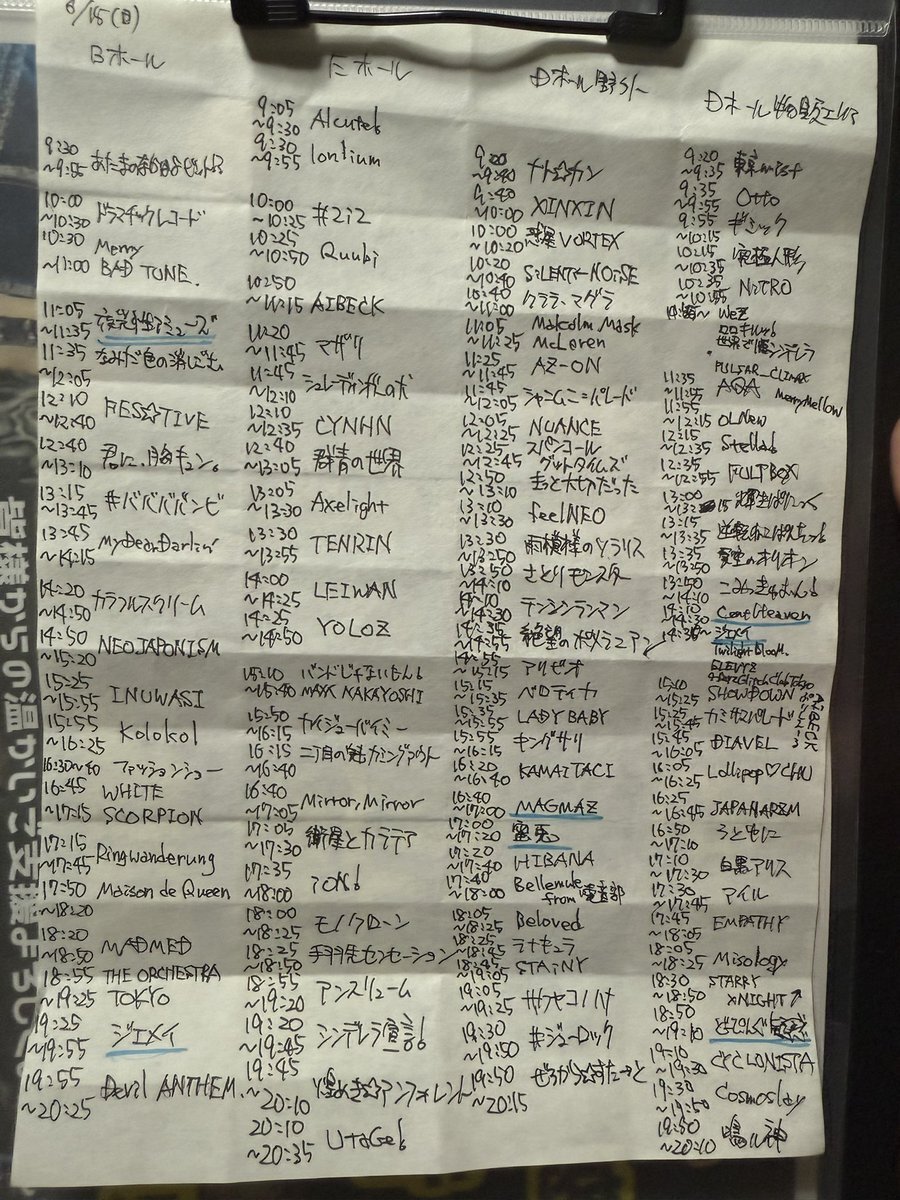 /15(日)
Bホール
9:30
~9:55
10:00
~10:30 ドラマチックレコード
10:30 Merry
~11:00 BAD TONE.
11:05
~11:35 夜光性アミューズ
11:35 なみだ色の消しごむ
~12:05
12:10 FES☆TIVE
~12:40
12:40 君に、胸キュン。
~13:10
13:15 #ババババンビ
~13:45
13:45 MyDearDarlin'
~14:15
14:20 カラフルスクリーム
~14:50
14:50 NEO JAPONISM
~15:20
15:25 INUWASI
~15:55
15:55 Kolokol
~16:25
16:30~40 ファッションショー
16:45 WHITE
~17:15 SCORPION
17:15 Ringwanderung
~17:45
17:50 Maison de Queen
~18:20
18:20 MADMED
~18:50
18:55 THE ORCHESTRA
~19:25 TOKYO
19:25 ジエメイ
~19:55
19:55 Devil ANTHEM.
~20:25
Eホール
9:05
~9:30
9:30 Iontium
~9:55
10:00 #2i2
~10:25
10:25 Quubi
~10:50
10:50
~11:15 AIBECK
11:20
~11:45 マザリ
11:45 シュレーディンガーの犬
~12:10
12:10 CYNHN
~12:35
12:40 群青の世界
~13:05
13:05 Axelight
~13:30
13:30 TENRIN
~13:55
14:00 LEIWAN
~14:25
14:25 YOLOZ
~14:50
15:10 バンドじゃないもん!
~15:40 MAXX NAKAYOSHI
15:50 カイジューバイミー
~16:15
16:15 二丁目の魁カミングアウト
~16:40
16:40
~17:05 Mirror,Mirror
17:05 衛星とカラテア
~17:30
17:35
~18:00
18:00 モノクローン
~18:25
18:25 手羽先センセーション
~18:50
18:55 アンスリューム
~19:20
19:20 シンデレラ宣言!
~19:45
19:45 煌めき☆アンフォレント
~20:10
20:10 UtaGe!
~20:35
Dホール野外
9:20
~9:40 ナト☆カン
9:40
~10:00 XINXIN
10:00 惑星VORTEX
~10:20
10:20 SiLENT←NOiSE
~10:40
10:40 クララ・マグラ
~11:00
11:05 Malcolm Mask
~11:25 McLaren
11:25 AZ-ON
~11:45
11:45 シャニムニ=パレード
~12:05
12:05 NUANCE
~12:25
12:25 スパンコール
~12:45 グッドタイムズ
12:50 きっと大切だった
~13:10
13:10 feelNEO
~13:30
13:30 雨模様のソラリス
~13:50
13:50 さとりモンスター
~14:10
14:10 テンシンランマン
~14:30
14:35 絶望のポメラニアン
~14:55
14:55 アリゼオ
~15:15
15:15 ベロティカ
~15:35
15:35 LADYBABY
~15:55
15:55 キングサリ
~16:15
16:20 KAMAITACI
~16:40
16:40 MAGMAZ
~17:00
17:00 蜜兎
~17:20
17:20 HIBANA
~17:40
17:40 Bellemule
~18:00 from
18:05 Beloved
~18:25
18:25 ラナキュラ
~18:45
18:45 STAiNY
~19:05
19:05 ザアザコハナ
~19:25
19:30 #ジューロック
~19:50
19:50 ぜろからはすたーと
~20:15
Dホール物販エリア
9:20 東京mist
~9:35
9:35 Otto
~9:55
9:55 ギミック
~10:15
10:15 究極人形
~10:35
10:35 NiTRO
~10:55
WeZ
世界で1番シンデレラ
PULSAR_CLIMAX
11:35 AQA MerryMellow
~11:55
11:55
~12:15 OLNew
12:15 Stella
~12:35
12:35 FULTBOX
~12:55
13:00 輝きぱにっく
13:15
~13:35
13:35 夏空のオリオン
~13:50
13:50
~14:10
14:10 ContHeaven
~14:30
ジエメイ
Twilight Bloom.
15:10 SHOWDOWN
15:25 カミサマパレード
~15:45
15:45 DIAVEL
~16:05
16:05 Lollipop♡CHU
~16:25
16:25 JAPANARIZM
~16:45
16:50 うともに
~17:10
17:10 白黒アリス
~17:30
17:30 アイル
~17:45
17:45 EMPATHY
~18:05
18:05 Misology
~18:25
18:30 STARRY
~18:50 XNIGHT
18:50
~19:10
19:10 CYCLONISTA
~19:30
19:30 Cosmoslay
~19:50
19:50 鳴ル神
~20:10
皆様からの温かいご支援よろしく